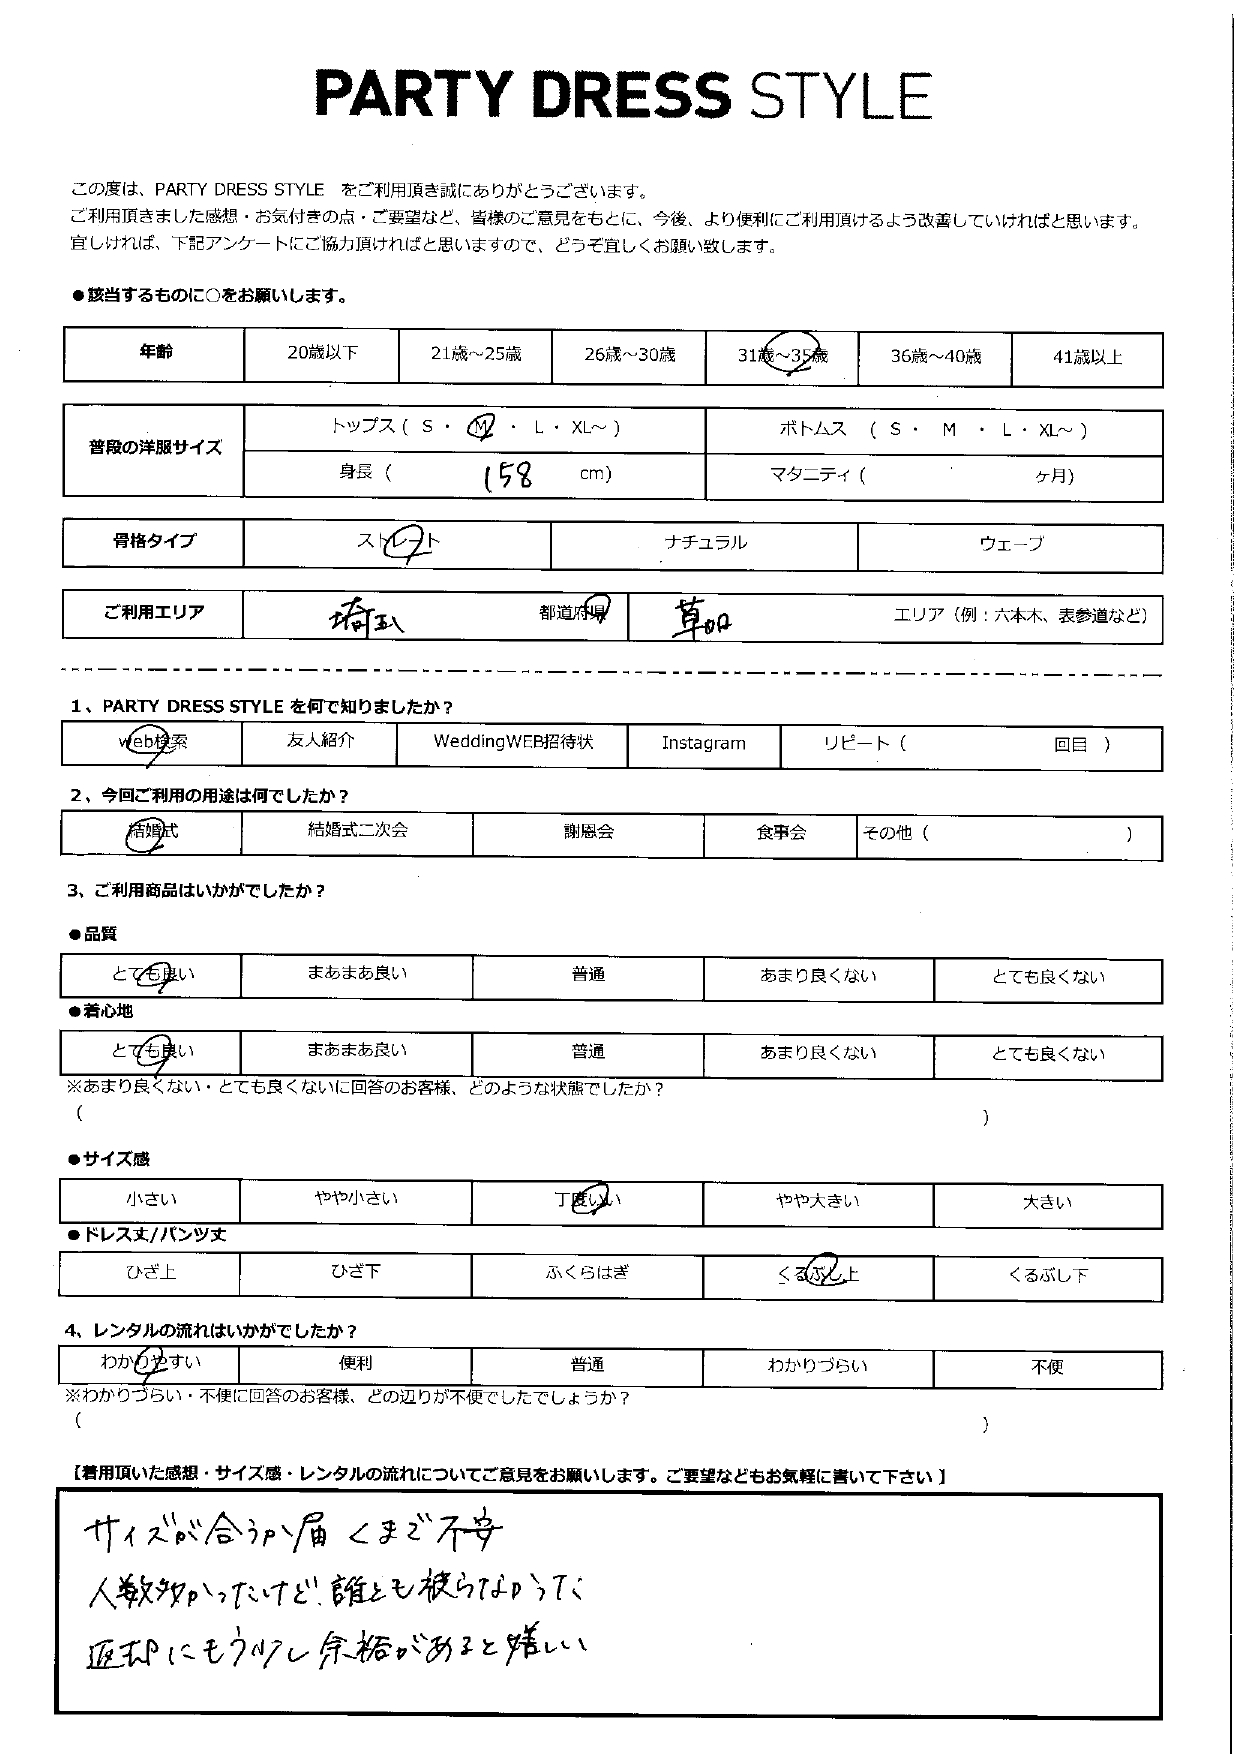 PARTY DRESS STYLE
この度は、PARTY DRESS STYLE をご利用頂き誠にありがとうございます。
ご利用頂きました感想・お気付きの点・ご要望など、皆様のご意見をもとに、今後、より便利にご利用頂けるよう改善していければと思います。
宜しければ、下記アンケートにご協力頂ければと思いますので、どうぞ宜しくお願い致します。
●該当するものに○をお願いします。
年齢 20歳以下 21歳～25歳 26歳～30歳 31歳～35歳 36歳～40歳 41歳以上
普段の洋服サイズ トップス ( S ・ M ・ L ・ XL～ ) ボトムス ( S ・ M ・ L ・ XL～ )
身長 ( 158 cm) マタニティ ( ヶ月)
骨格タイプ ストレート ナチュラル ウェーブ
ご利用エリア 埼玉 都道府県 草加 エリア（例：六本木、表参道など）
1、PARTY DRESS STYLE を何で知りましたか？
web検索 友人紹介 WeddingWEB招待状 Instagram リピート ( 回目 )
2、今回ご利用の用途は何でしたか？
結婚式 結婚式二次会 謝恩会 食事会 その他 ( )
3、ご利用商品はいかがでしたか？
●品質
とても良い まあまあ良い 普通 あまり良くない とても良くない
●着心地
とても良い まあまあ良い 普通 あまり良くない とても良くない
※あまり良くない・とても良くないに回答のお客様、どのような状態でしたか？
( )
●サイズ感
小さい やや小さい 丁度いい やや大きい 大きい
●ドレス丈/パンツ丈
ひざ上 ひざ下 ふくらはぎ くるぶし上 くるぶし下
4、レンタルの流れはいかがでしたか？
わかりやすい 便利 普通 わかりづらい 不便
※わかりづらい・不便に回答のお客様、どの辺りが不便でしたでしょうか？
( )
【着用頂いた感想・サイズ感・レンタルの流れについてご意見をお願いします。ご要望などもお気軽に書いて下さい】
サイズが合うか届くまで不安
人数多かったけど、誰とも被らなかった
返却にもう少し余裕があると嬉しい